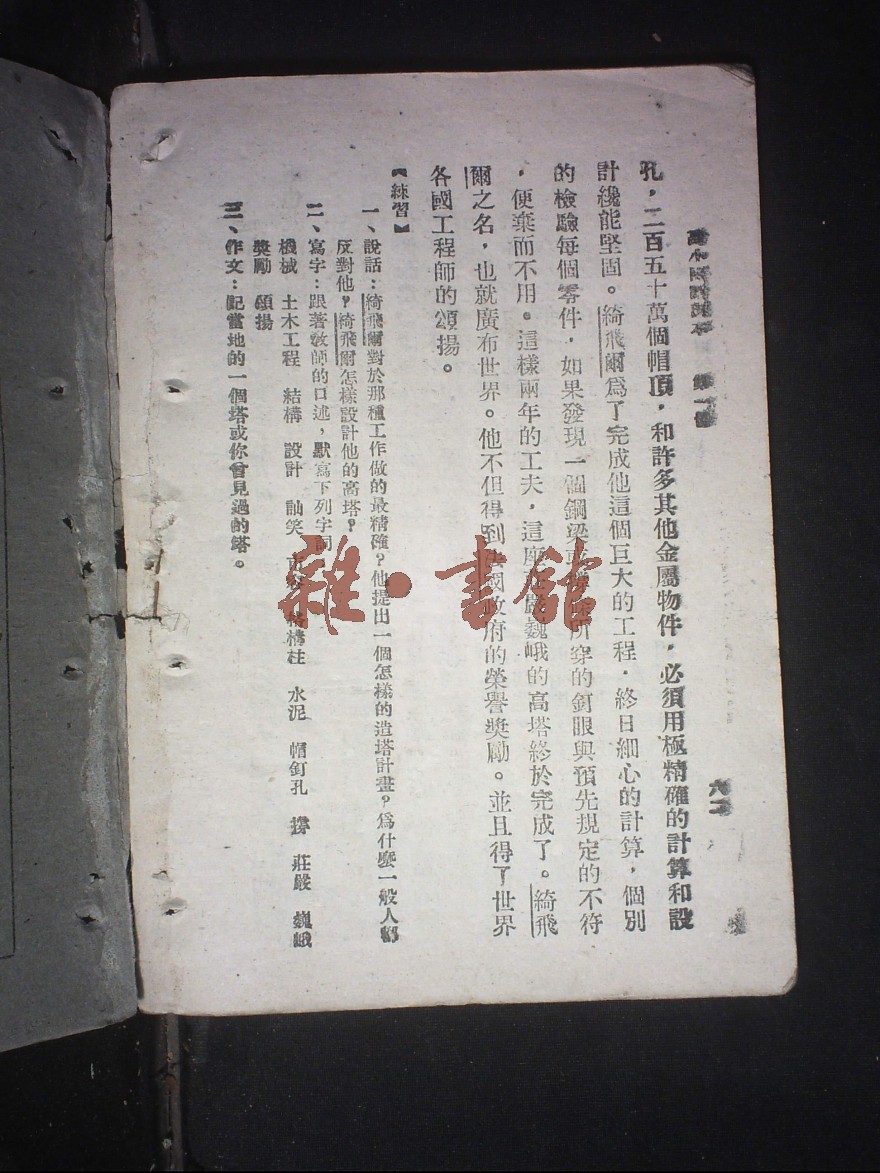 高小國語課本 第一冊
六二
孔，二百五十萬個帽頂，和許多其他金屬物件，必須用極精確的計算和設
計纔能堅固。綺飛爾為了完成他這個巨大的工程，終日細心的計算，個別
的檢驗每個零件，如果發現一個鋼梁或所穿的釘眼與預先規定的不符
，便棄而不用。這樣兩年的工夫，這座莊嚴巍峨的高塔終於完成了。綺飛
爾之名，也就廣布世界。他不但得到法國政府的榮譽獎勵。並且得了世界
各國工程師的頌揚。
【練習】
一、說話：綺飛爾對於那種工作做的最精確？他提出一個怎樣的造塔計畫？為什麼一般人都
反對他？綺飛爾怎樣設計他的高塔？
二、寫字：跟著教師的口述，默寫下列字詞
機械 土木工程 結構 設計 訕笑 格構柱 水泥 帽釘孔 撐 莊嚴 巍峨
獎勵 頌揚
三、作文：記當地的一個塔或你曾見過的塔。
雜·書館